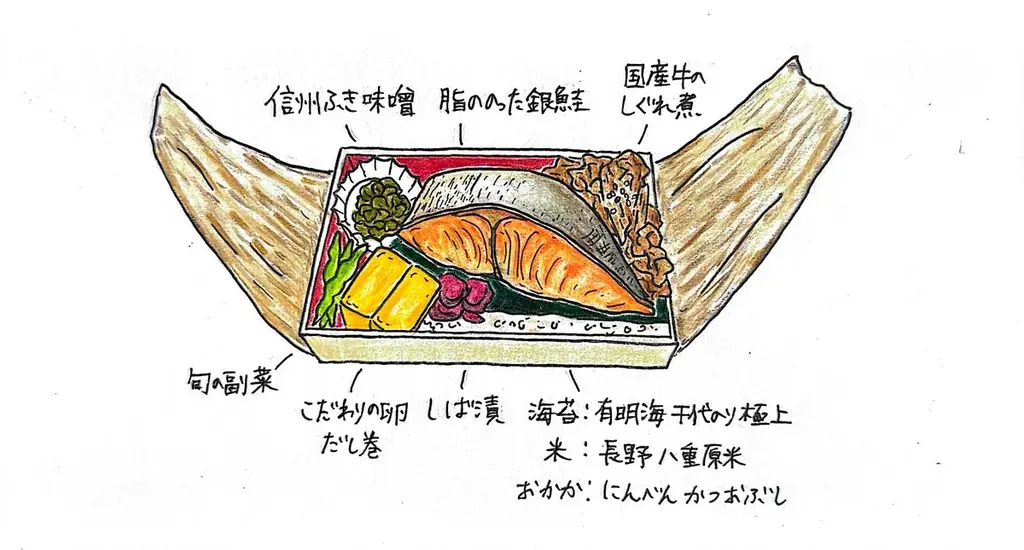 信州ふき味噌
脂ののった銀鮭
国産牛の
しぐれ煮
旬の副菜
こだわりの卵
だし巻
しば漬
海苔:有明海 千代のり 極上
米:長野八重原米
おかか:にんべん かつおぶし